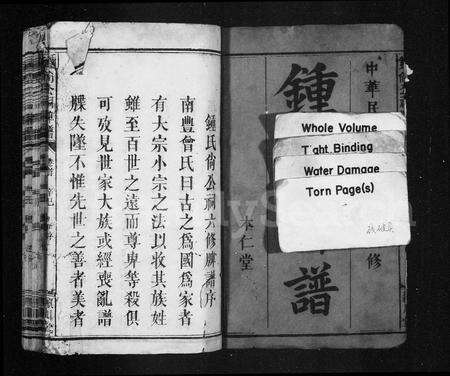 中華民
修
鍾
譜
本仁堂
Whole Volume
Tight Binding
Water Damage
Torn Page(s)
鍾氏尙公祠六修牒譜序
南豐曾氏曰古之爲國爲家者
有大宗小宗之法以收其族姓
雖至百世之遠而尊卑等殺俱
可攷見世家大族或經喪亂譜
牒失墜不惟先世之善者美者